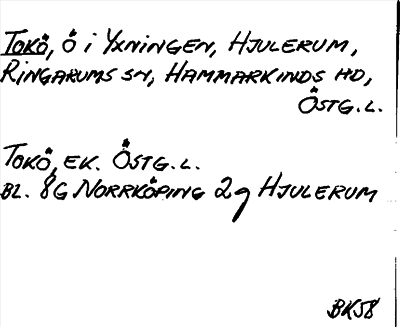 TOKÖ, Ö i YXNINGEN, HJULERUM,
RINGARUMS SN, HAMMARKINDS HD,
ÖSTG.L.
TOKÖ, EK. ÖSTG.L.
BL. 8G NORRKÖPING 2g HJULERUM
BK58